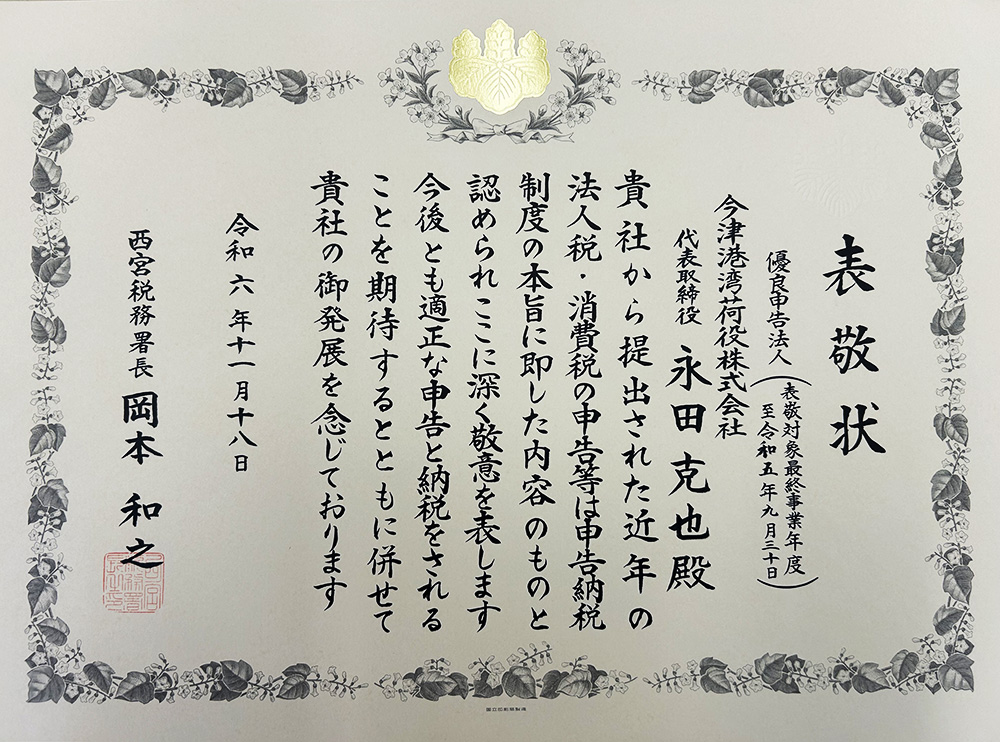 表敬状
優良申告法人(表敬対象最終事業年度
至令和五年九月三十日)
今津港湾荷役株式会社
代表取締役 永田克也殿
貴社から提出された近年の
法人税・消費税の申告等は申告納税
制度の本旨に即した内容のものと
認められここに深く敬意を表します
今後とも適正な申告と納税をされる
ことを期待するとともに併せて
貴社の御発展を念じております
令和六年十一月十八日
西宮税務署長 岡本和之
国立印刷局製造